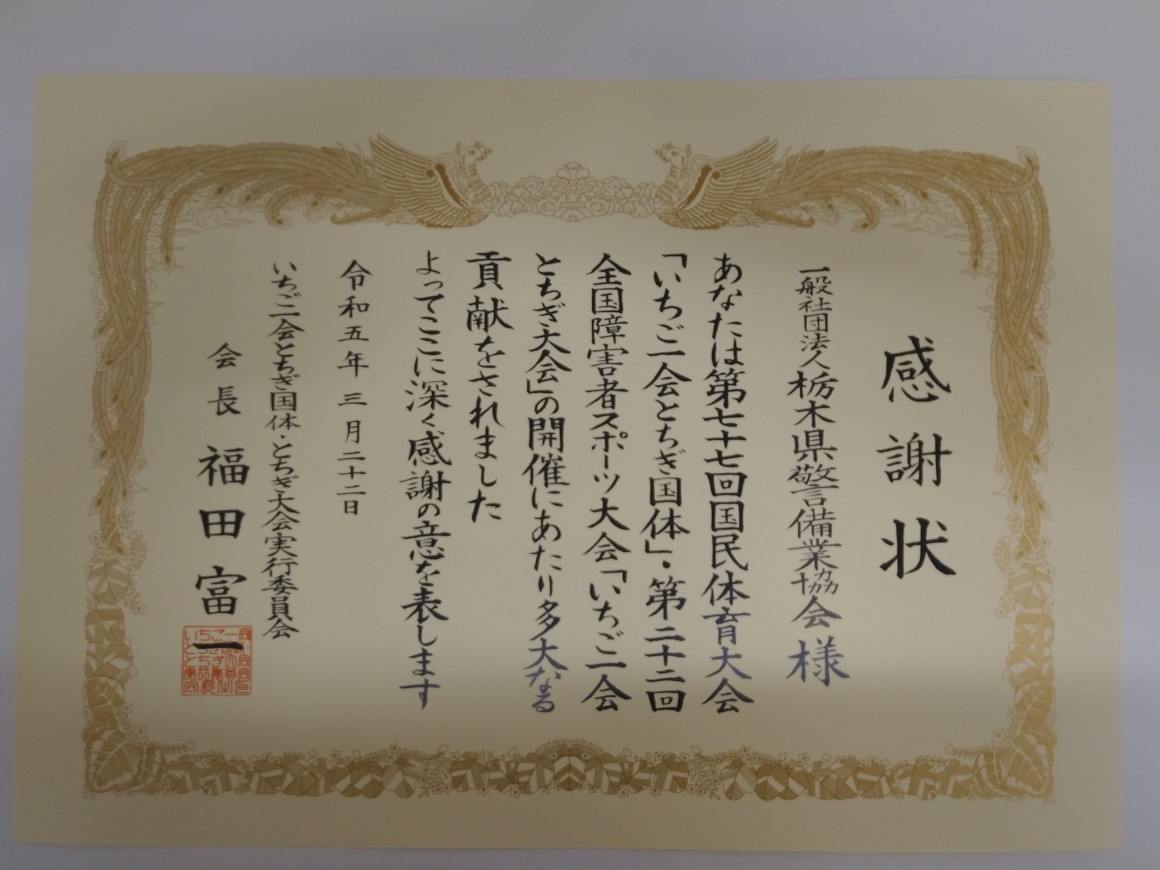 感謝状
一般社団法人栃木県警備業協会様
あなたは第七十七回国民体育大会
「いちご一会とちぎ国体」・第二十二回
全国障害者スポーツ大会「いちご一会
とちぎ大会」の開催にあたり多大なる
貢献をされました
よってここに深く感謝の意を表します
令和五年三月二十二日
いちご一会とちぎ国体・とちぎ大会実行委員会
会長福田富一